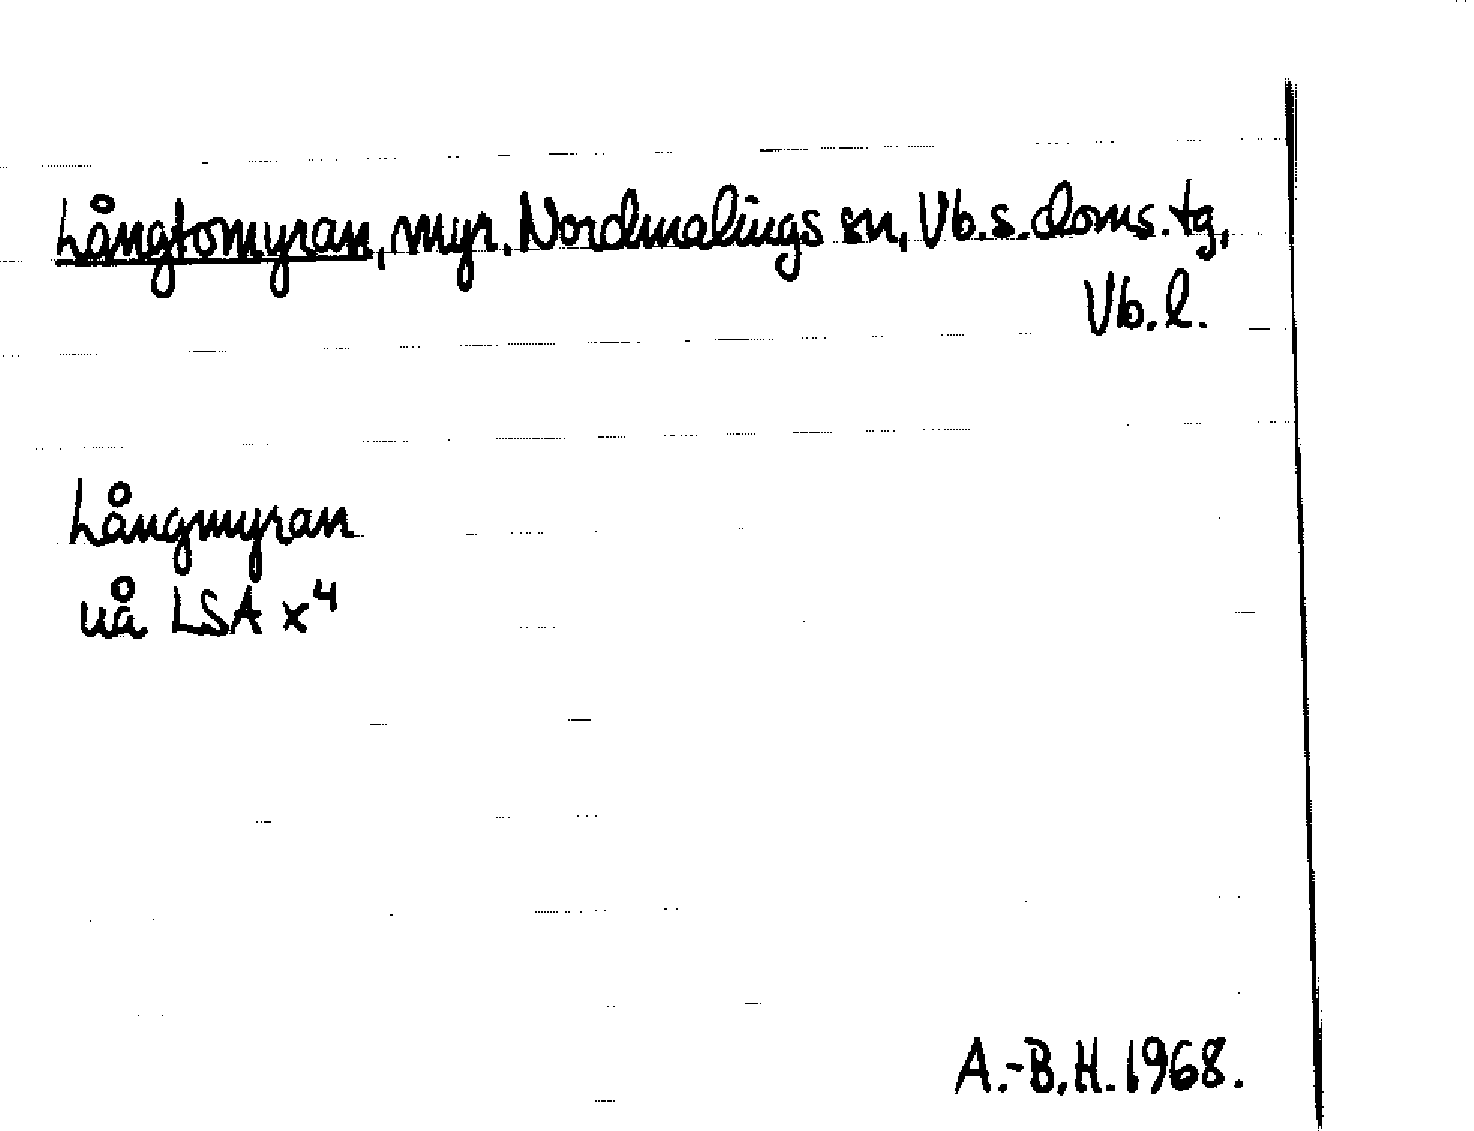 Långtomyran, myr. Nordmalings sn, Vb.s.doms.tg,
Vb.l.
Långmyran
uå LSA x⁴
A.-B.H.1968.